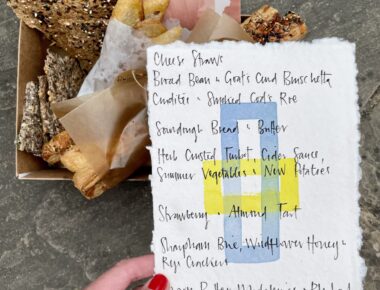 Cheese Straws
Broad Bean & Goats Curd Bruschetta
Crudités & Smoked Cod's Roe
Sourdough Bread & Butter
Herb Crusted Turbot, Cider Sauce,
Summer Vegetables & New Potatoes
Strawberry & Almond Tart
Sharpham Brie, Wildflower Honey &
Rye Crackers